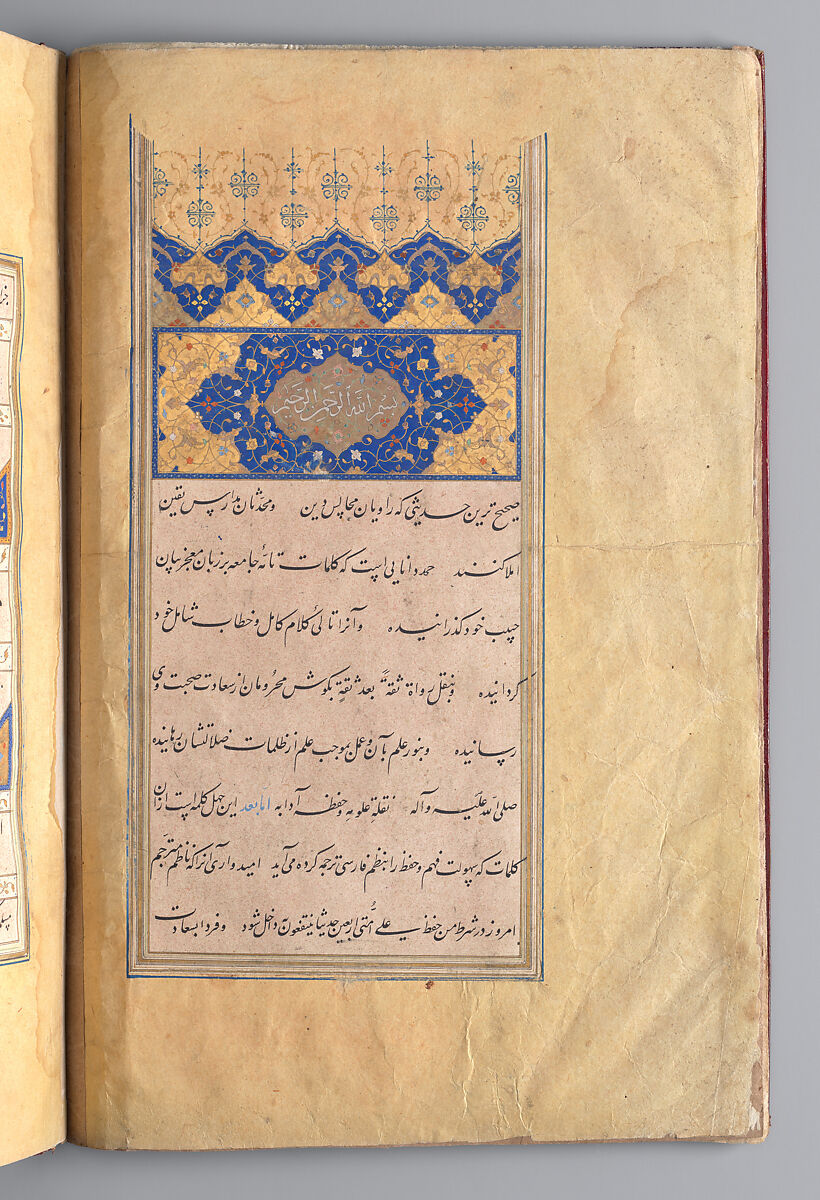 بسم الله الرحمن الرحیم
صحیح ترین حدیثی که راویان مجالس دین و محدثان مدارس یقین
املا کنند حمد دانایی است که کلمات تامهٔ جامعه بر زبان معجز بیان
حبیب خود گذرانیده و آنرا تالی کلام کامل و خطاب شامل خود
گردانیده و بنقل رواة ثقةً بعد ثقةٍ بگوش محرومان از سعادت صحبت وی
رسانیده و بنور علم بآن و عمل بموجب علم از ظلمات ضلالتشان رهانیده
صلی الله علیه و آله نقلة علومه و حفظة آدابه اما بعد این چهل کلمه است ازان
کلمات که سهولت فهم و حفظ را بنظم فارسی ترجمه کرده می آید امیدواری آنرا که ناظم مترجم
امروز در شرط من حفظ علی امتی اربعین حدیثا ینتفعون به داخل شود و فردا بسعادت